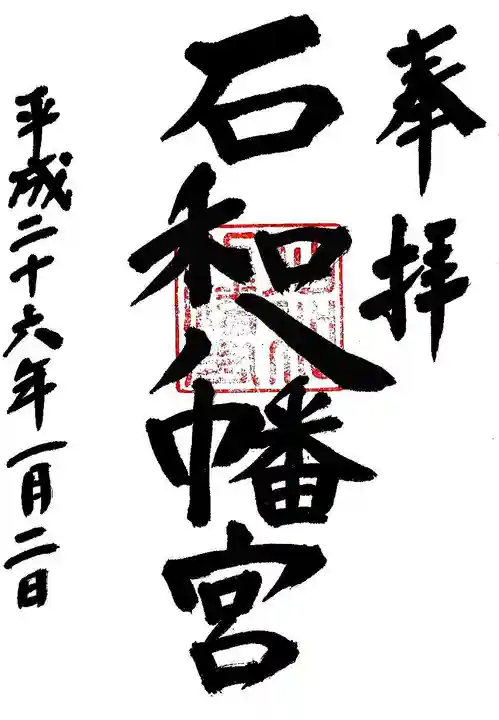 奉拝
石和八幡宮
平成二十六年一月二日